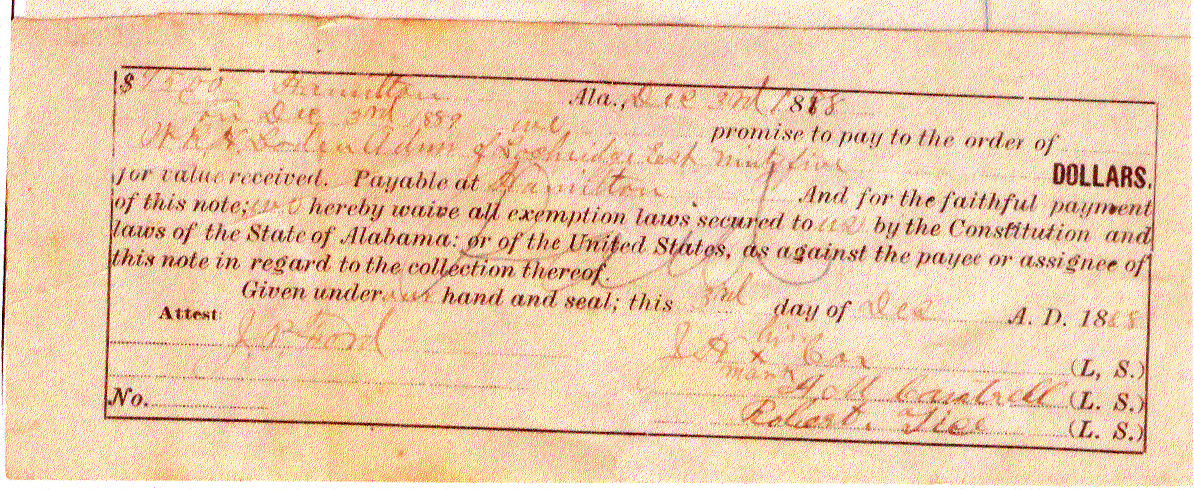 $ 95.00 Hamilton Ala., Dec 3rd 1888
On Dec 3rd 1889 we promise to pay to the order of
Loden Admr of Lochridge Est Ninty five DOLLARS.
for value received. Payable at Hamilton And for the faithful payment
of this note; we hereby waive all exemption laws secured to us by the Constitution and
laws of the State of Alabama: or of the United States, as against the payee or assignee of
this note in regard to the collection thereof.
Given under our hand and seal; this 3rd day of Dec A. D. 1888
Attest: J. P. Ford
his
J A x Cox (L, S.)
mark
Cantrell (L. S.)
No. Robert Tice (L. S.)